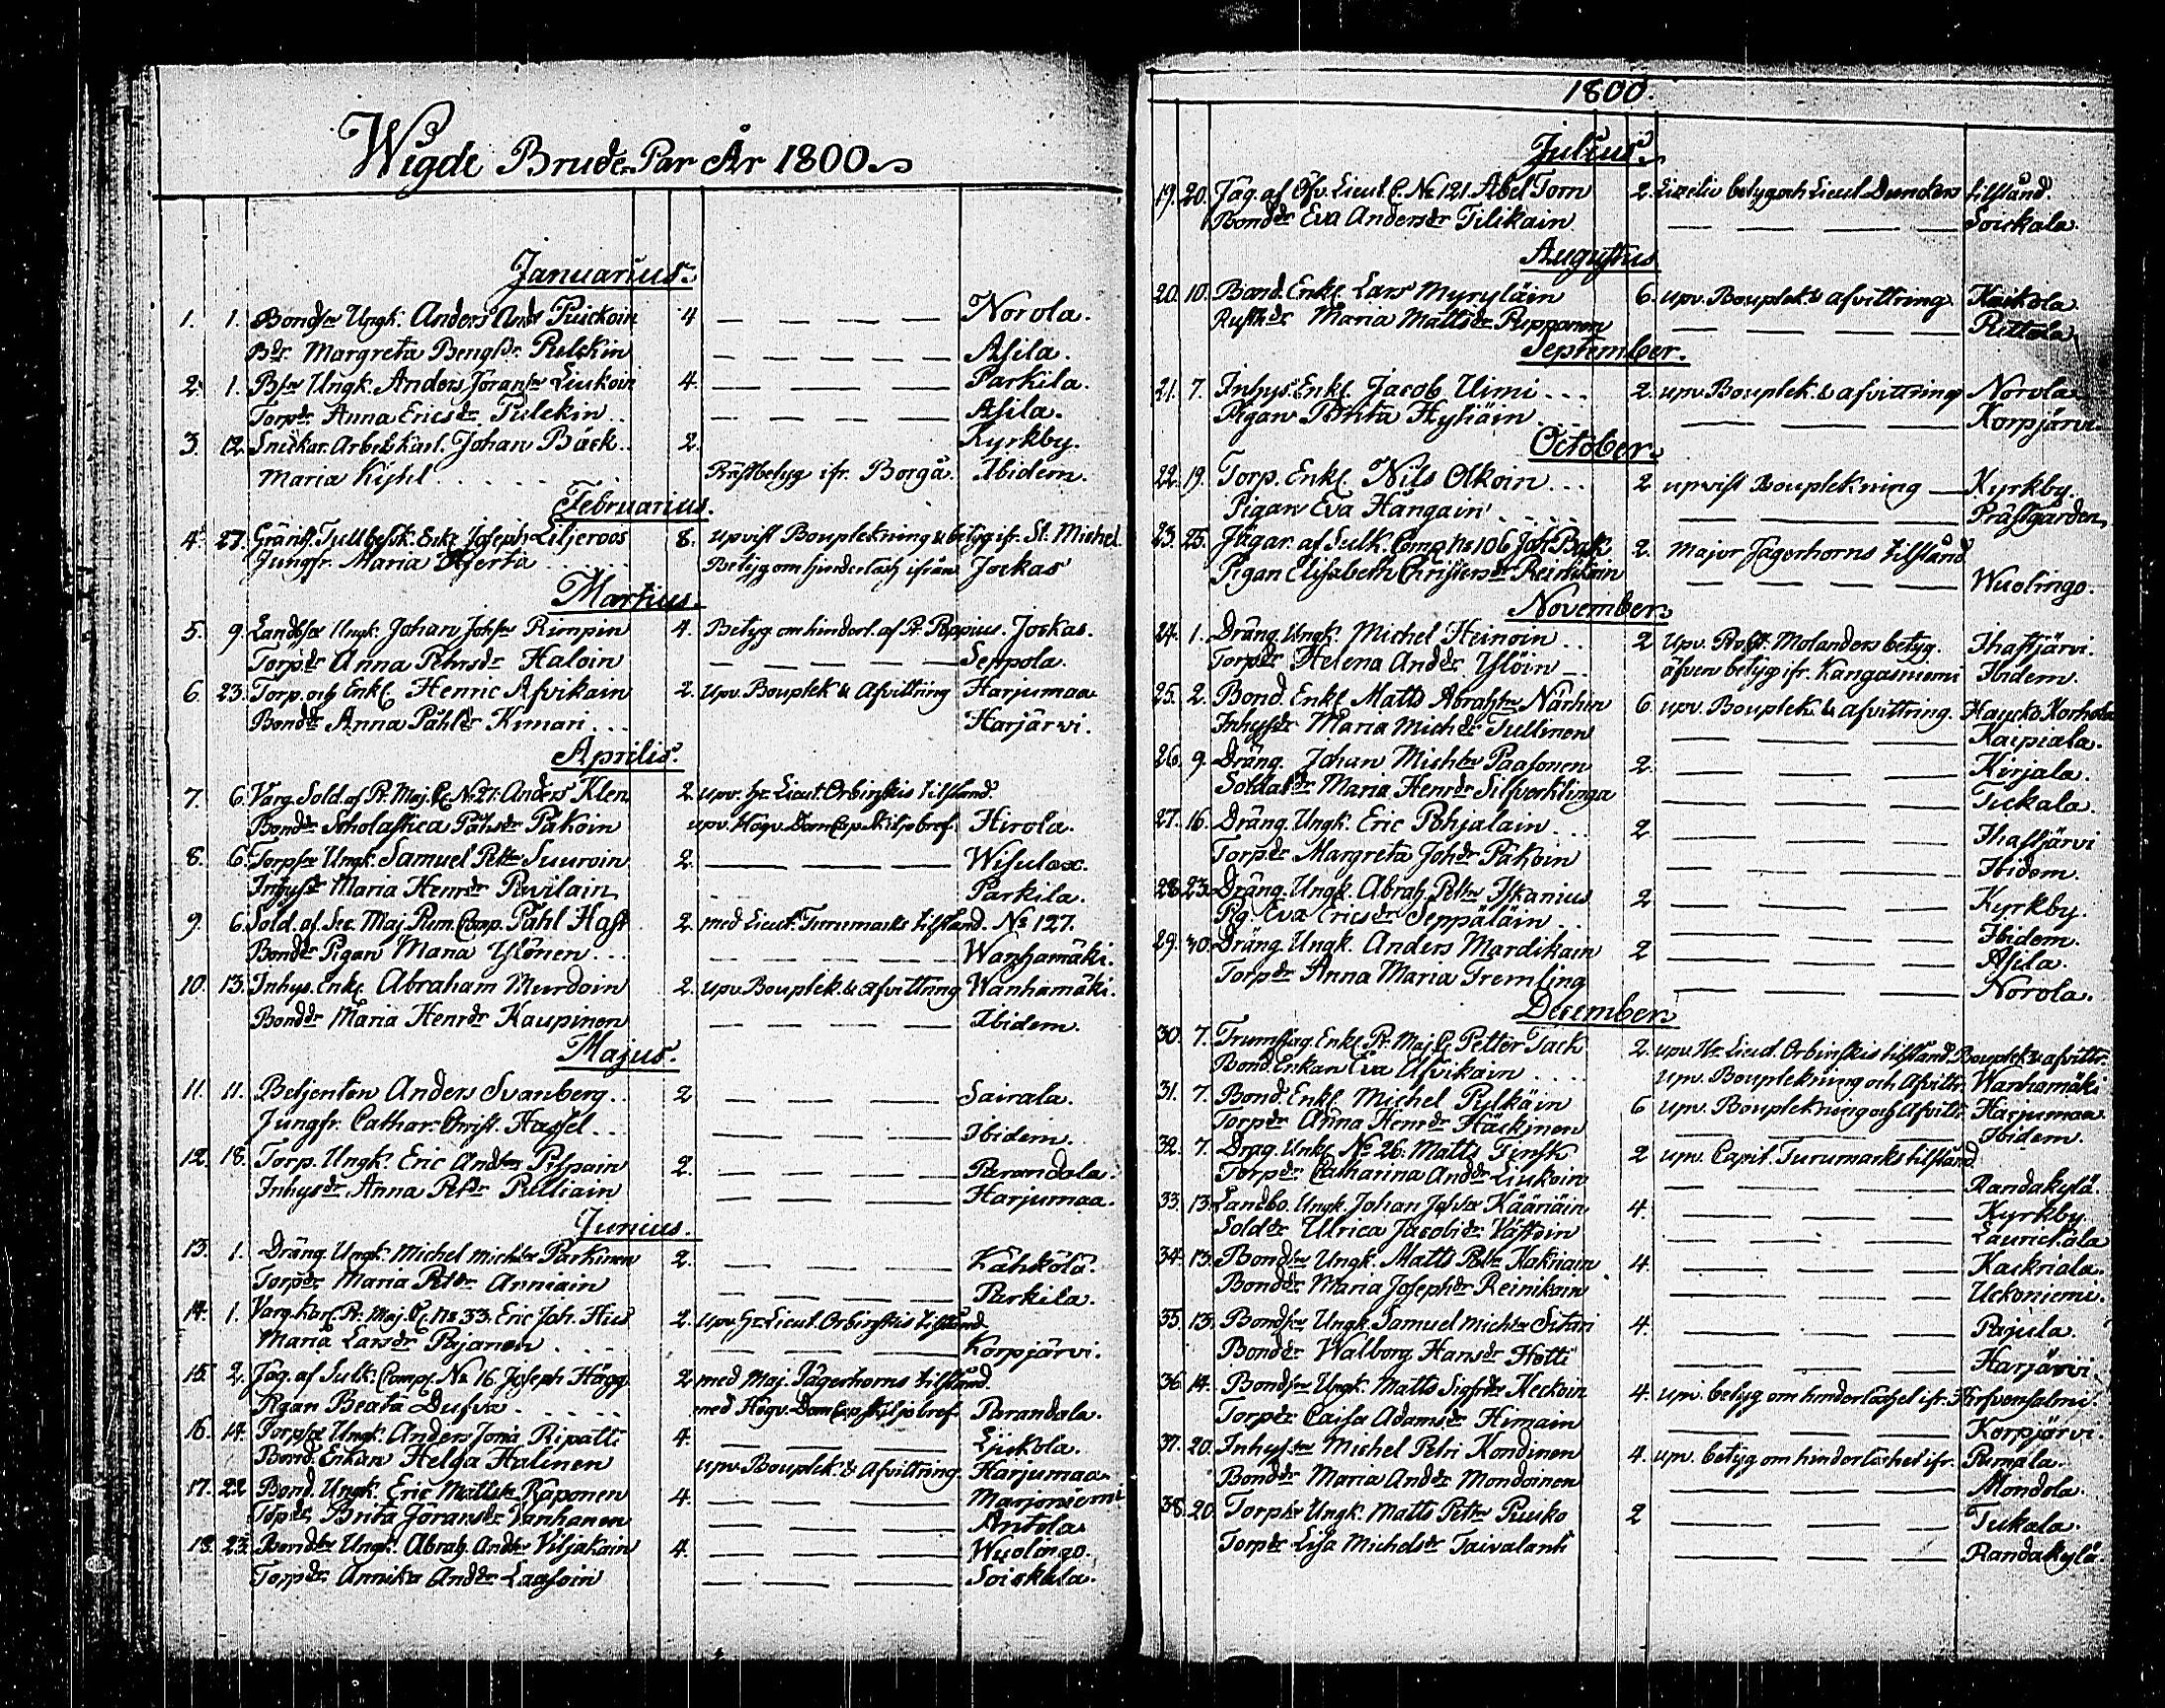 Wigde Brude-Par År 1800
Januarius.
1. 1. Bondsn Ungk. Anders Ands Puickoin 4 — — — — Norola.
Bdr Margreta Bengtsdr Pulckin — — — — Asila.
2. 1. Bsn Ungk. Anders Joransn Liukoin 4. — — — — Parkila.
Torpdr Anna Ericsdr Pulckin — — — — Asila.
3. 12. Snickar. Arbets Karl. Johan Bäck 2. Kyrkby.
Maria Kihl Prästbetyg ifr. Borgå. Ibidem.
Februarius.
4. 27. Gräns Tullbesk. Enkl. Joseph Liljeroos 8. upvist Bouplekning & betyg ifr. St. Michel
Jungfr. Maria Hjerta Betyg om hinderlösh. ifrån Jockas
Martius.
5. 9. Landbsn Ungk. Johan Johsn Rimpin 4. Betyg om hinderl. af Pr. Poppius. Jockas.
Torpdr Anna Pehrsdr Haloin — — — — Seppola.
6. 23. Torp. och Enkl. Henric Afvikain 2. upv. Bouplek. & Afvittring Harjumaa
Bonddr Anna Påhlsdr Kimari Harjärvi.
Aprilis.
7. 6. Varg. Sold. af Pr. Maj. C. No 27. Anders Klen 2. upv. Hr Lieut. Orbinskis tilstånd.
Bonddr Scholastica Påhsdr Pakoin upv. Högv. Dom Cap. Skiljobref. Hirola.
8. 6. Torpsn Ungk. Samuel Petsn Suuroin 2. — — — Wisulax.
Inhysdr Maria Henrdr Pevilain Parkila.
9. 6. Sold. af Sec. Maj. Rum. Comp. Påhl Hast 2. med Lieut. Turumarks tilstånd. No 127.
Bonddr Pigan Maria Ylönen — — — — Wanhamäki.
10. 13. Inhys. Enkl. Abraham Murdoin 2. upv. Bouplek. & afvittring Wanhamäki.
Bonddr Maria Henrdr Kaupinen — — — — Ibidem.
Majus.
11. 11. Betjenten Anders Svanberg 2 — — — Sairala.
Jungfr. Cathar. Christ. Hassel — — — Ibidem.
12. 18. Torp. Ungk. Eric Andsn Pispain 2. — — — Parandala.
Inhysdr Anna Petdr Pulliain — — — Harjumaa.
Junius.
13. 1. Dräng. Ungk. Michel Michsn Parkinen 2. — — — Kähkölä.
Torpdr Maria Petdr Anniain — — — Parkila.
14. 1. Varg. Karl. Pr. Maj. C. No 33. Eric Joh. Hus 2. upv. Hr Lieut. Orbinskis tilstånd
Maria Larsdr Pajanen — — — Korpjärvi.
15. 2. Jäg. af Sulk. Comp. No 16. Joseph Hägg 2 med Maj. Jägerhorns tilstånd.
Pigan Beata Dufva med Högv. Dom Cap. Skiljobref Parandala.
16. 14. Torpsn Ungk. Anders Jona Ripatti 4. — — — Ljickola.
Bond. Enkan Helga Halinen upv. Bouplek. & Afvittring. Harjumaa
17. 22 Bond. Ungk. Eric Mattsn Räponen 4. — — — Marjoniemi
Topdr Brita Göransdr Vanhanen — — — Antola
18. 23. Bondsn Ungk. Abrah. Andsn Viljakain 4. — — — Wuolingo.
Torpdr Annika Anddr Laasoin — — — Soickala.
1800.
Julius.
19. 20. Jäg. af Öfv. Lieut. C. No 121. Abel Torn 2. betyg och Lieut. Dunckers tilstånd.
Bonddr Eva Andersdr Tilikain — — — — Soickala.
Augustus
20. 10. Bond. Enkl. Lars Myryläin 6. upv. Bouplek. & afvittring. Kaikola.
Rusthdr Maria Mattsdr Pupponen — — — — Pittola
September.
21. 7. Inhys. Enkl. Jacob Uimi 2. upv. Bouplek. & afvittring Norola
Pigan Brita Hyliäin — — — — Korpjärvi.
October.
22. 19. Torp. Enkl. Nils Olkoin 2 upvist Bouplekning — Kyrkby.
Pigan Eva Hängain — — — — Prästgården.
23. 25. Jägar. af Sulk. Comp No 106 Joh. Bak 2. Major Jägerhorns tilstånd
Pigan Elisabeth Christersdr Reinikain — — — — Wuolingo.
November.
24. 1. Dräng. Ungk. Michel Heinoin 2 Upv. Prost. Molanders betyg. Ihastjärvi.
Torpdr Helena Anddr Ylöin äfven betyg ifr. Kangasniemi Ibidem.
25. 2. Bond. Enkl. Matts Abrahsn Närhin 6 upv. Bouplek. & afvittring. Haucko Korhola
Inhysdr Maria Michdr Tullinen — — — Karpiala.
26. 9 Dräng. Johan Michsn Paasonen 2. — — — Kirjala.
Soldatdr Maria Henrdr Silfverklinga — — — Tickala.
27. 16. Dräng. Ungk. Eric Pohjalain 2. — — — Ihastjärvi
Torpdr Margreta Johdr Pakoin — — — Ibidem.
28. 23. Dräng. Ungk. Abrah. Petsn Iskanius 2 — — — Kyrkby.
Pig. Eva Ericsdr Seppäläin — — — Ibidem.
29. 30. Dräng. Ungk. Anders Mardikain 2 — — — Asila.
Torpdr Anna Maria Tremling — — — Norola.
December.
30. 7. Trumslag. Enkl. Pr. Maj. C. Petter Tack 2. upv. Hr Lieut. Orbinskis tilstånd. Bouplek. & afvittr.
Bond. Enkan Eva Afvikain upv. Bouplekning och Afvittr. Wanhamäki
31. 7. Bond. Enkl. Michel Pylkäin 6 upv. Bouplekning och Afvittr. Harjumaa
Torpdr Anna Henrdr Häckinen — — — Ibidem.
32. 7. Drag. Unkl No 26. Matts Finsk 2 upv. Capit. Turumarks tilstånd
Torpdr Catharina Anddr Liukoin — — — Randakylä.
33. 13. Landbo. Ungk. Johan Johsn Kääriäin 4. — — — Kyrkby.
Solddr Ulrica Jacobsdr Västoin — — — Laurickala
34. 13. Bondsn Ungk. Matts Petsn Kakriain 4. — — — Kackriala.
Bonddr Maria Josephdr Reinikain — — — Uckoniemi.
35. 13. Bondsn Ungk. Samuel Michsn Sitari 4. — — — Pajula.
Bonddr Walborg Hansdr Hotti — — — Harjärvi
36. 14. Bondsn Ungk. Matts Sigfrdsn Keckoin 4. upv. betyg om hinderlöshet ifr. Hirfvensalmi.
Torpdr Caisa Adamsdr Himain — — — Korpjärvi.
37. 20. Inhyssn Michel Petri Kondinen 4. upv. betyg om hinderlöshet ifr. Pumala.
Bonddr Maria Anddr Mondoinen — — — Mondola.
38. 20. Torpsn Ungk. Matts Petsn Puisko 2 — — — Tukala.
Torpdr Lisa Michelsdr Taivalanti — — — Randakylä.